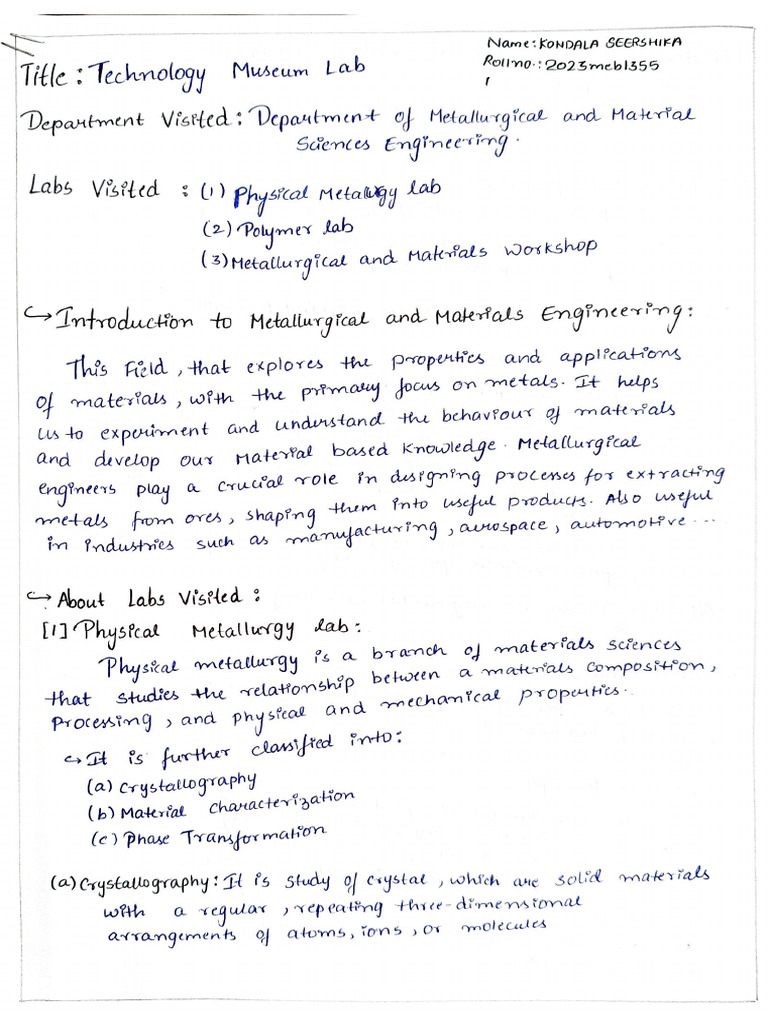 Name: KONDALA SEERSHIKA
Rollno.: 2023meb1355
1
Title: Technology Museum Lab
Department Visited: Department of Metallurgical and Material
Sciences Engineering.
Labs Visited : (1) Physical Metallurgy lab
(2) Polymer lab
(3) Metallurgical and Materials Workshop
↪ Introduction to Metallurgical and Materials Engineering:
This Field, that explores the properties and applications
of materials, with the primary focus on metals. It helps
us to experiment and understand the behaviour of materials
and develop our Material based Knowledge. Metallurgical
engineers play a crucial role in designing processes for extracting
metals from ores, shaping them into useful products. Also useful
in industries such as manufacturing, aerospace, automotive...
↪ About Labs Visited :
[1] Physical Metallurgy lab:
Physical metallurgy is a branch of materials sciences
that studies the relationship between a materials composition,
Processing, and physical and mechanical properties.
↪ It is further classified into:
(a) Crystallography
(b) Material Characterization
(c) Phase Transformation
(a) Crystallography: It is study of crystal, which are solid materials
with a regular, repeating three-dimensional
arrangements of atoms, ions, or molecules